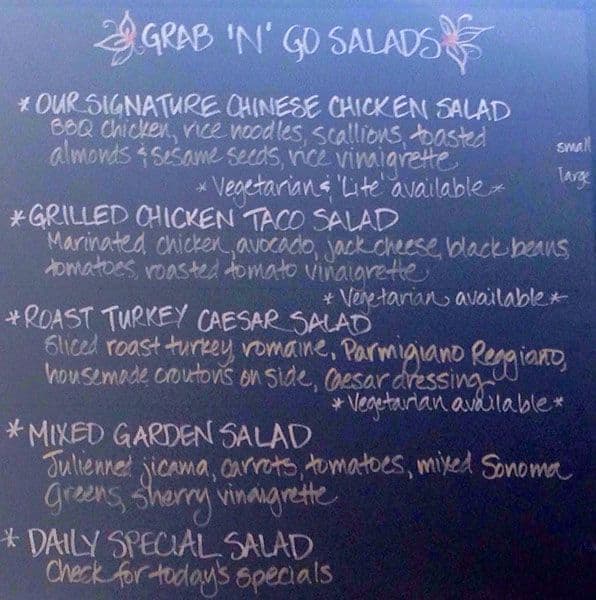 GRAB 'N' GO SALADS
* OUR SIGNATURE CHINESE CHICKEN SALAD
BBQ Chicken, rice noodles, scallions, toasted
almonds & Sesame seeds, rice vinaigrette
* Vegetarian & 'Lite' available *
small
large
* GRILLED CHICKEN TACO SALAD
Marinated chicken, avocado, jack cheese, black beans,
tomatoes, roasted tomato vinaigrette
* Vegetarian available *
* ROAST TURKEY CAESAR SALAD
Sliced roast turkey, romaine, Parmigiano Reggiano,
housemade croutons on side, Caesar dressing
* Vegetarian available *
* MIXED GARDEN SALAD
Julienned jicama, carrots, tomatoes, mixed Sonoma
Greens, sherry vinaigrette
* DAILY SPECIAL SALAD
Check for today's specials